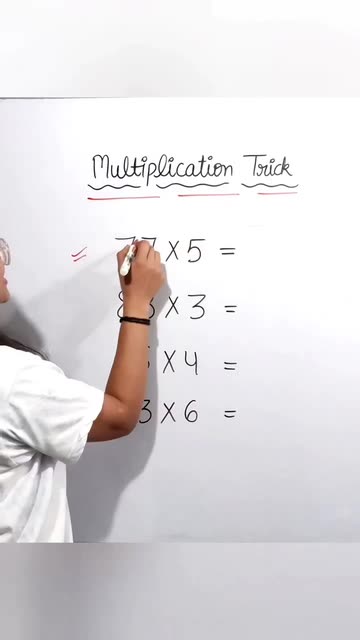 Multiplication Trick
77 X 5 =
X 3 =
X 4 =
3 X 6 =